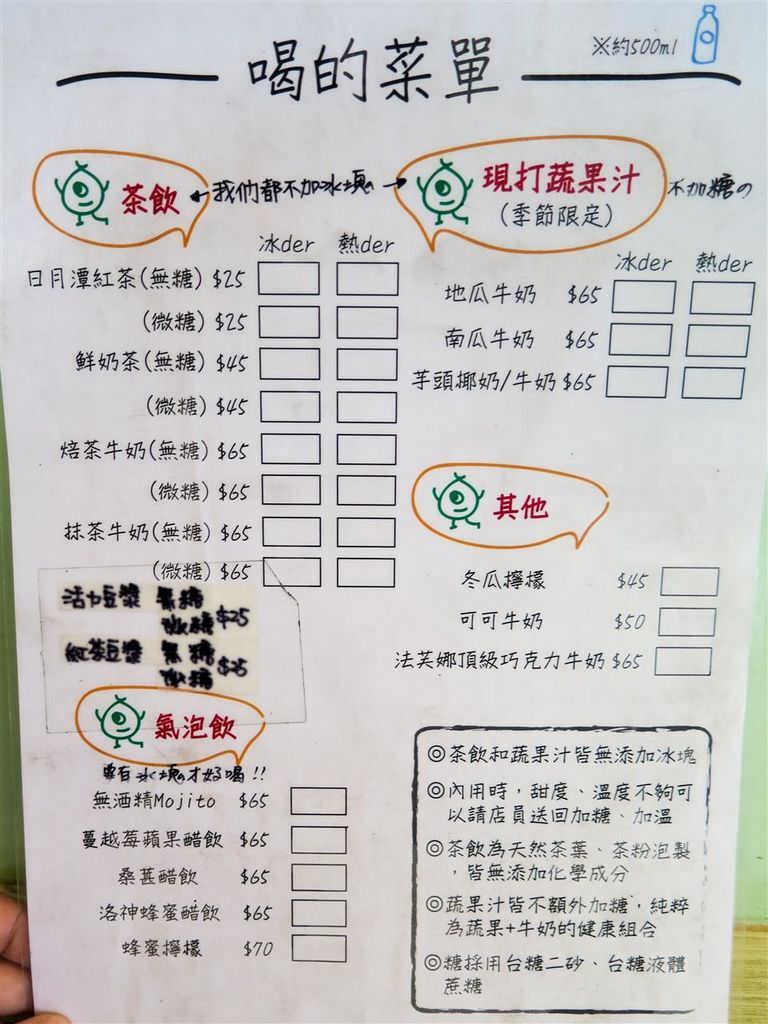 喝的菜單
※約500ml
茶飲
←我們都不加冰塊。→
冰der 熱der
日月潭紅茶(無糖) $25
(微糖) $25
鮮奶茶(無糖) $45
(微糖) $45
焙茶牛奶(無糖) $65
(微糖) $65
抹茶牛奶(無糖) $65
(微糖) $65
活力豆漿 無糖
微糖 $25
紅茶豆漿 無糖
微糖 $25
現打蔬果汁
(季節限定)
不加糖の
冰der 熱der
地瓜牛奶 $65
南瓜牛奶 $65
芋頭椰奶/牛奶 $65
其他
冬瓜檸檬 $45
可可牛奶 $50
法芙娜頂級巧克力牛奶 $65
氣泡飲
要有冰塊才好喝!!
無酒精Mojito $65
蔓越莓蘋果醋飲 $65
桑葚醋飲 $65
洛神蜂蜜醋飲 $65
蜂蜜檸檬 $70
◎茶飲和蔬果汁皆無添加冰塊
◎內用時,甜度、溫度不夠可
以請店員送回加糖、加溫
◎茶飲為天然茶葉、茶粉泡製
,皆無添加化學成分
◎蔬果汁皆不額外加糖,純粹
為蔬果+牛奶的健康組合
◎糖採用台糖二砂、台糖液體
蔗糖